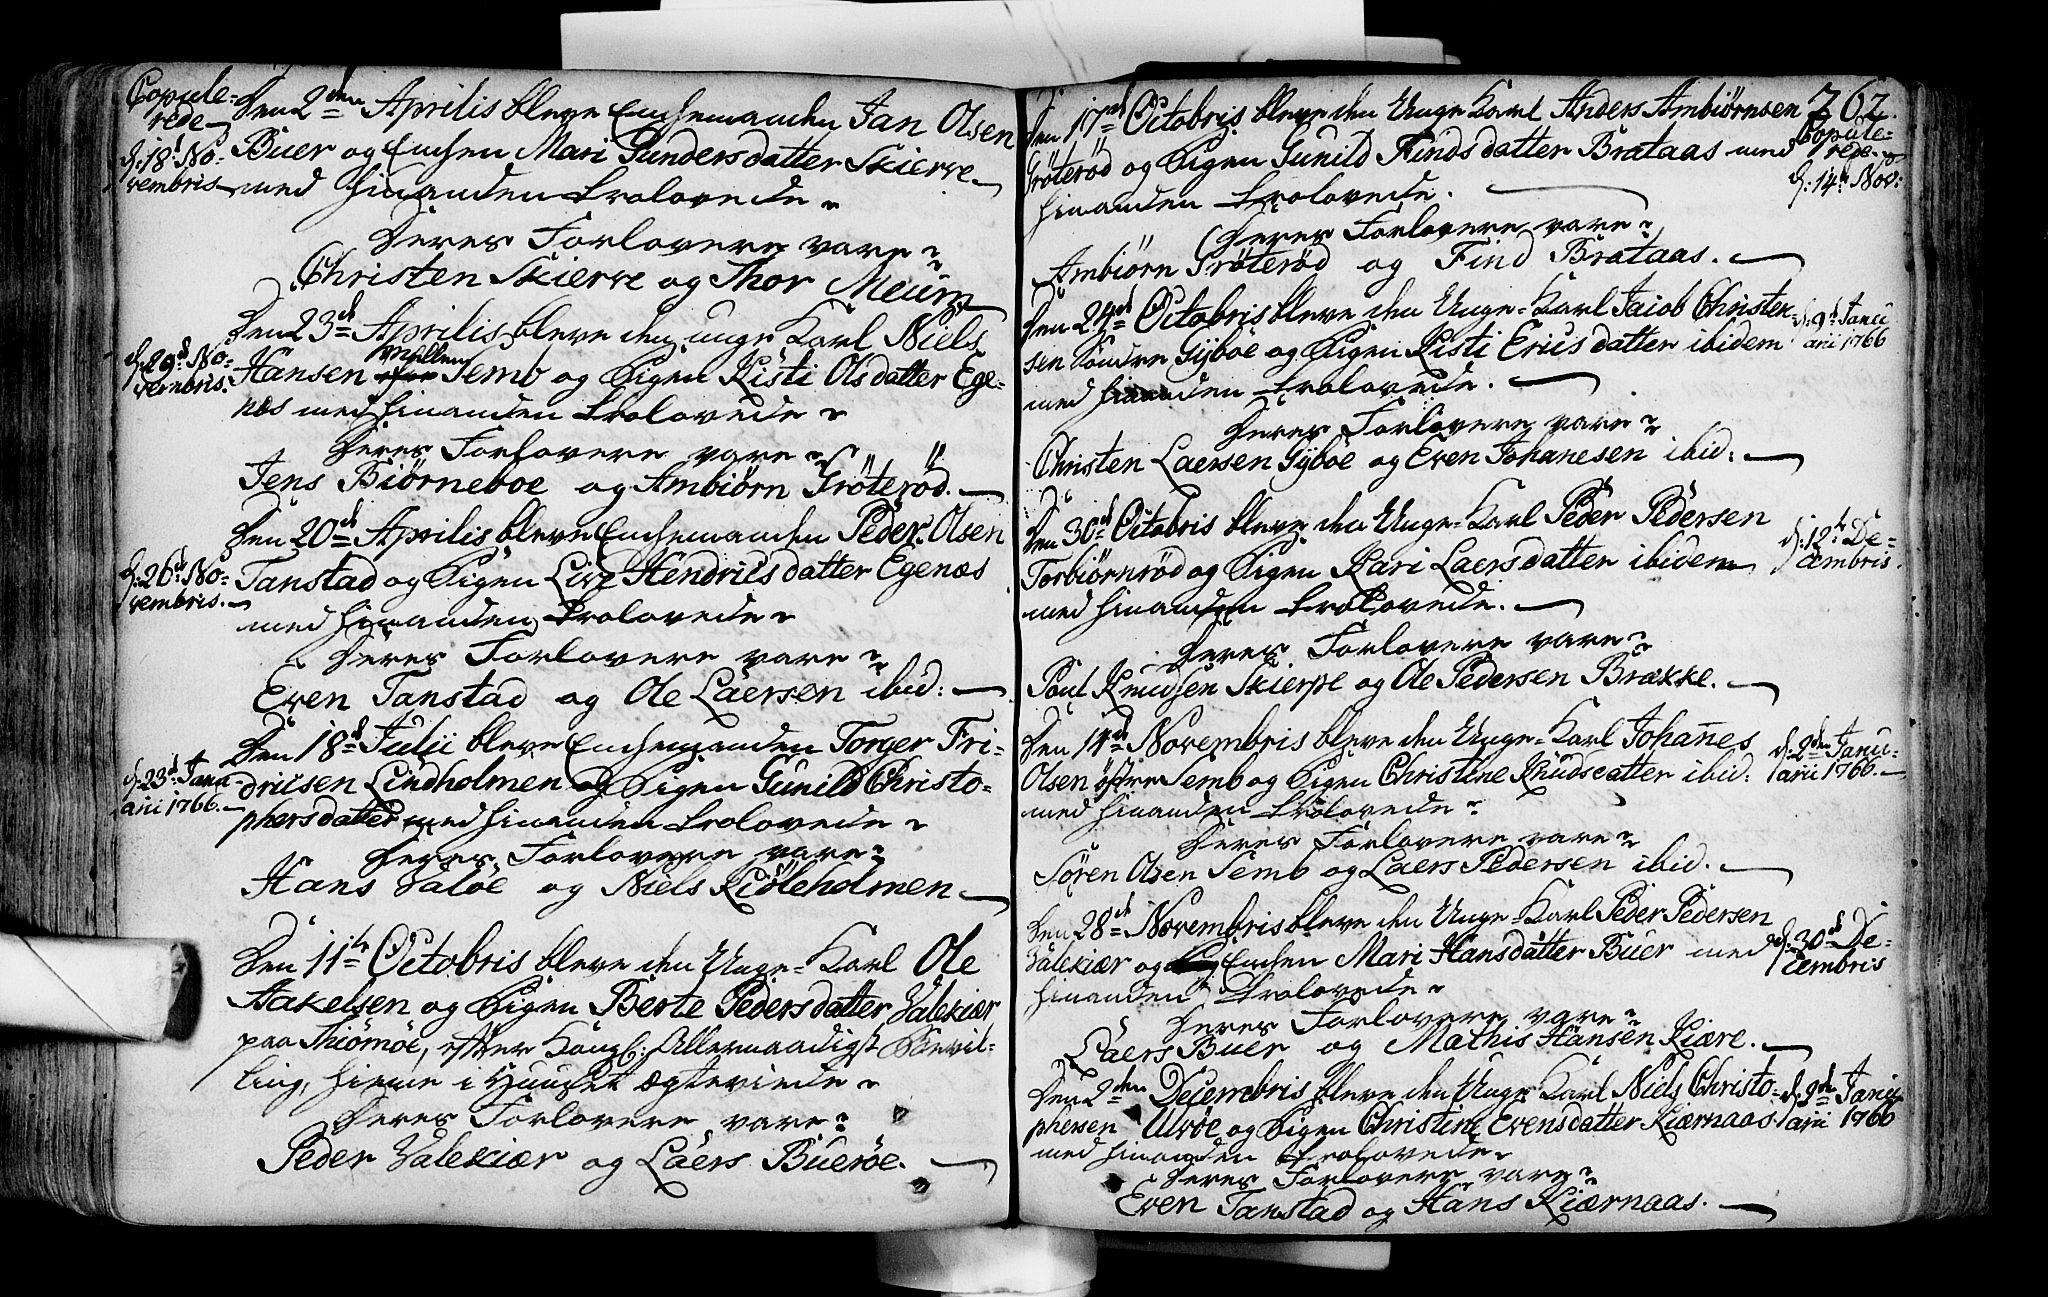 Copule-
rede
d: 18d No-
vembris
Den 2den Aprilis bleve Enchemanden Jan Olsen
Buer og Enchen Mari Gundersdatter Skierve
med hinanden trolovede
Deres Forlovere vare
Christen Skierve og Thor Meum
d: 29d No-
vembris.
Den 23d Aprilis bleve den unge Karl Niels
mellem
Hansen Semb og Pigen Kisti Olsdatter Ege-
næs med hinanden trolovede
Deres Forlovere vare
Jens Biørneboe og Ambiørn Grøterød.
d: 26d No-
vembris.
Den 20d Aprilis bleve Enchemanden Peder Olsen
Tanstad og Pigen Live Hendricsdatter Egenæs
med hinanden trolovede
Deres Forlovere vare
Even Tanstad og Ole Laersen ibid:
d: 23d Janu-
arii 1766.
Den 18d Julii bleve Enchemanden Torger Fri-
dricsen Lindholmen og Pigen Gunild Christo-
phersdatter med hinanden trolovede
Deres Forlovere vare
Hans Valøe og Niels Kiøleholmen
Den 11te Octobris bleve den Unge-Karl Ole
Aakelsen og Pigen Berte Pedersdatter Valekiær
paa Thiømøe, efter Kongl: Allernaadigst Bevil-
ling, hieme i Huuset ægteviede
Deres Forlovere vare
Peder Valekiær og Laers Buerøe.
262.
Copule-
rede
d: 14de Nov:
Den 17d Octobris bleve den Unge Karl Anders Ambiørnsen
Grøterød og Pigen Gunild Findsdatter Brataas med
hinanden trolovede.
Deres Forlovere vare
Ambiørn Grøterød og Find Brataas.
Den 24d Octobris bleve den Unge-Karl Jacob Christen-
d: 9d Janu-
arii 1766
sen Søndre Gyboe og Pigen Kisti Ericsdatter ibidem
med hinanden trolovede.
Deres Forlovere vare
Christen Laersen Gyboe og Even Johanesen ibid:
Den 30d Octobris bleve den Unge-Karl Peder Pedersen
d: 12te De-
cembris.
Torbiørnrød og Pigen Kari Laersdatter ibidem
med hinanden trolovede.
Deres Forlovere vare
Poul Knudsen Skierpe og Ole Pedersen Brække.
Den 14d Novembris bleve den Unge-Karl Johanes
d: 2den Janu-
arii 1766.
Olsen østre Semb og Pigen Christine Knudsdatter ibid:
med hinanden trolovede
Deres Forlovere vare
Søren Olsen Semb og Laers Pedersen ibid.
Den 28d Novembris bleve den Unge-Karl Peder Pedersen
d: 30d De-
cembris
Valekiær og Enchen Mari Hansdatter Buer med
hinanden trolovede
Deres Forlovere vare
Laers Buer og Mathis Hansen Kiære.
Den 2den Decembris bleve den Unge Karl Niels Christo-
d: 9de Janu-
arii 1766
phersen Ulvøe og Pigen Christine Evensdatter Kiærnaas
med hinanden trolovede
Deres Forlovere vare
Even Tanstad og Hans Kiærnaas.